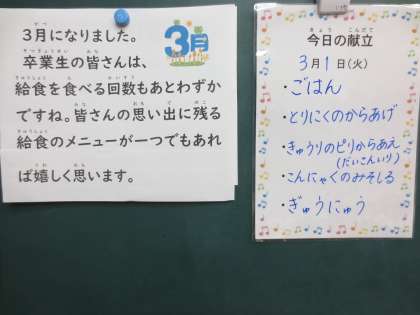 3月になりました。
卒業生の皆さんは、
給食を食べる回数もあとわずか
ですね。皆さんの思い出に残る
給食のメニューが一つでもあれ
ば嬉しく思います。
3月
今日の献立
3月1日(火)
・ごはん
・とりにくのからあげ
・きゅうりのピリからあえ
(だいこんいり)
・こんにゃくのみそしる
・ぎゅうにゅう